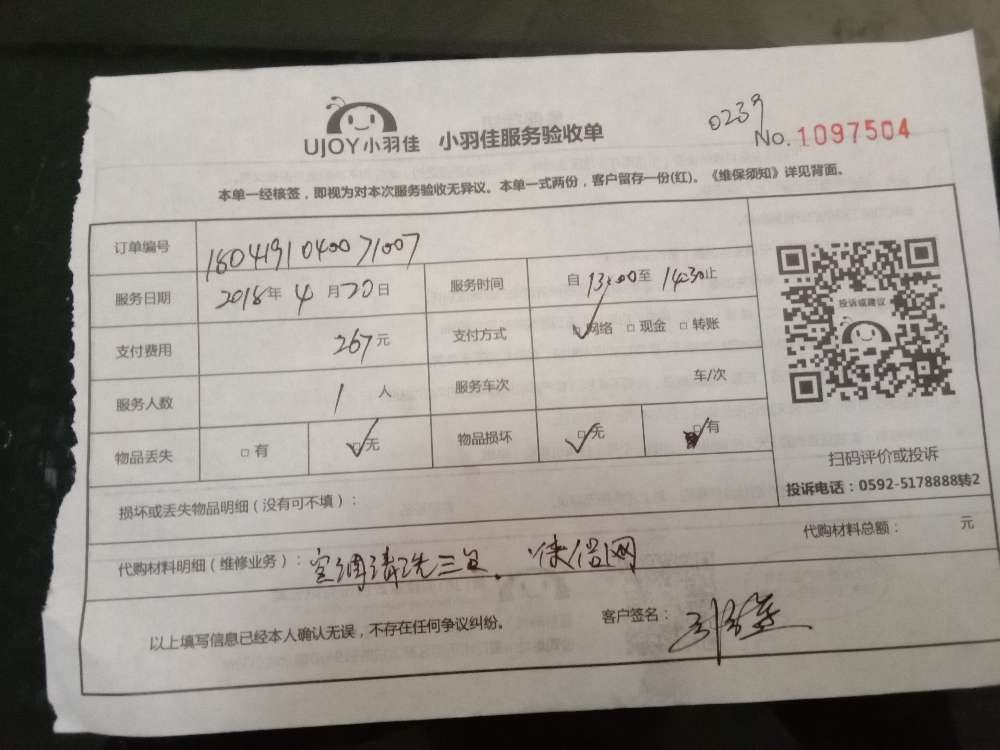 UJOY小羽佳 小羽佳服务验收单
0239
No. 1097504
本单一经核签，即视为对本次服务验收无异议。本单一式两份，客户留存一份(红)。《维保须知》详见背面。
订单编号 1804191040071007
服务日期 2018年4月20日 服务时间 自13:00至14:30止
支付费用 267元 支付方式 □网络 □现金 □转账
服务人数 1人 服务车次 车/次
物品丢失 □有 □无 物品损坏 □无 □有
投诉或建议
扫码评价或投诉
投诉电话：0592-5178888转2
损坏或丢失物品明细（没有可不填）：
代购材料明细（维修业务）：空调清洗三台. 网
代购材料总额： 元
以上填写信息已经本人确认无误，不存在任何争议纠纷。
客户签名：